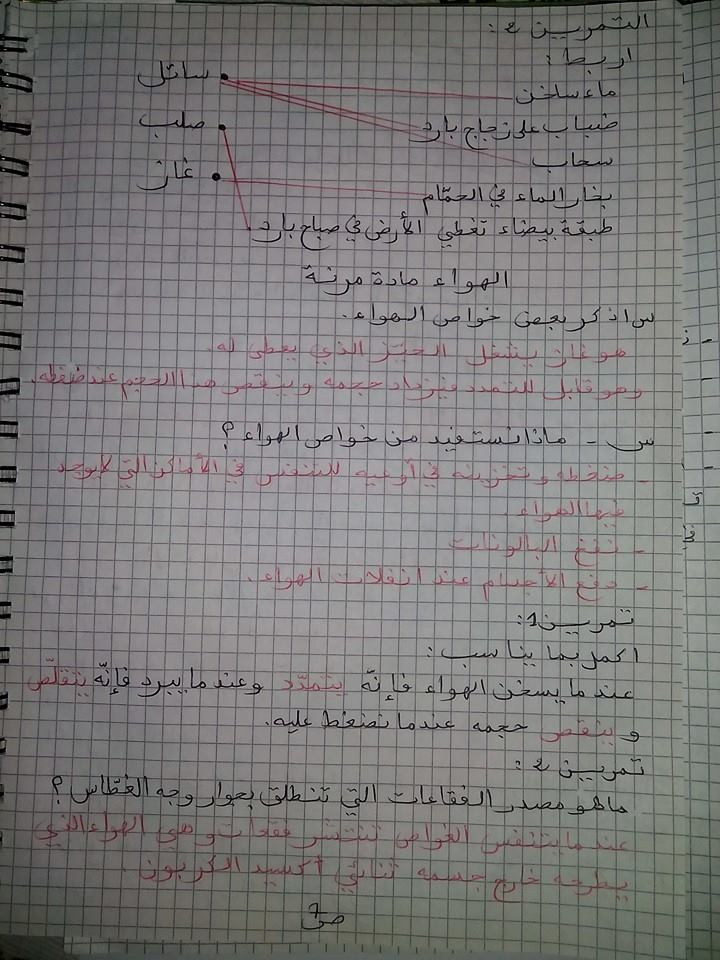 التمرين 2 :
اربط :
سائل
ماء ساخن
صلب
ضباب على زجاج بارد
سحاب
غاز
بخار الماء في الحمّام
طبقة بيضاء تغطي الأرض في صباح بارد
الهواء مادة مرنة
س اذكر بعض خواص الهواء.
هو غاز يشغل الحيّز الذي يعطى له.
وهو قابل للتمدد فيزداد حجمه وينقص هذا الحجم عند ضغطه.
س - ماذا نستفيد من خواص الهواء ؟
- ضغطه وتخزينه في أوعيه للتنفس في الأماكن التي لا يوجد
فيها الهواء.
- نفخ البالونات
- دفع الأجسام عند انفلات الهواء.
تمرين 1:
اكمل بما يناسب :
عندما يسخن الهواء فإنّه يتمدّد وعندما يبرد فإنّه يتقلّص
و ينقص حجمه عندما نضغط عليه.
تمرين 2 :
ما هو مصدر الفقاعات التي تنطلق بجوار وجه الغطّاس ؟
عندما يتنفس الغواص تنتشر فقعات وهي الهواء الذي
يطرحه خارج جسمه ثنائي أكسيد الكربون
ص7